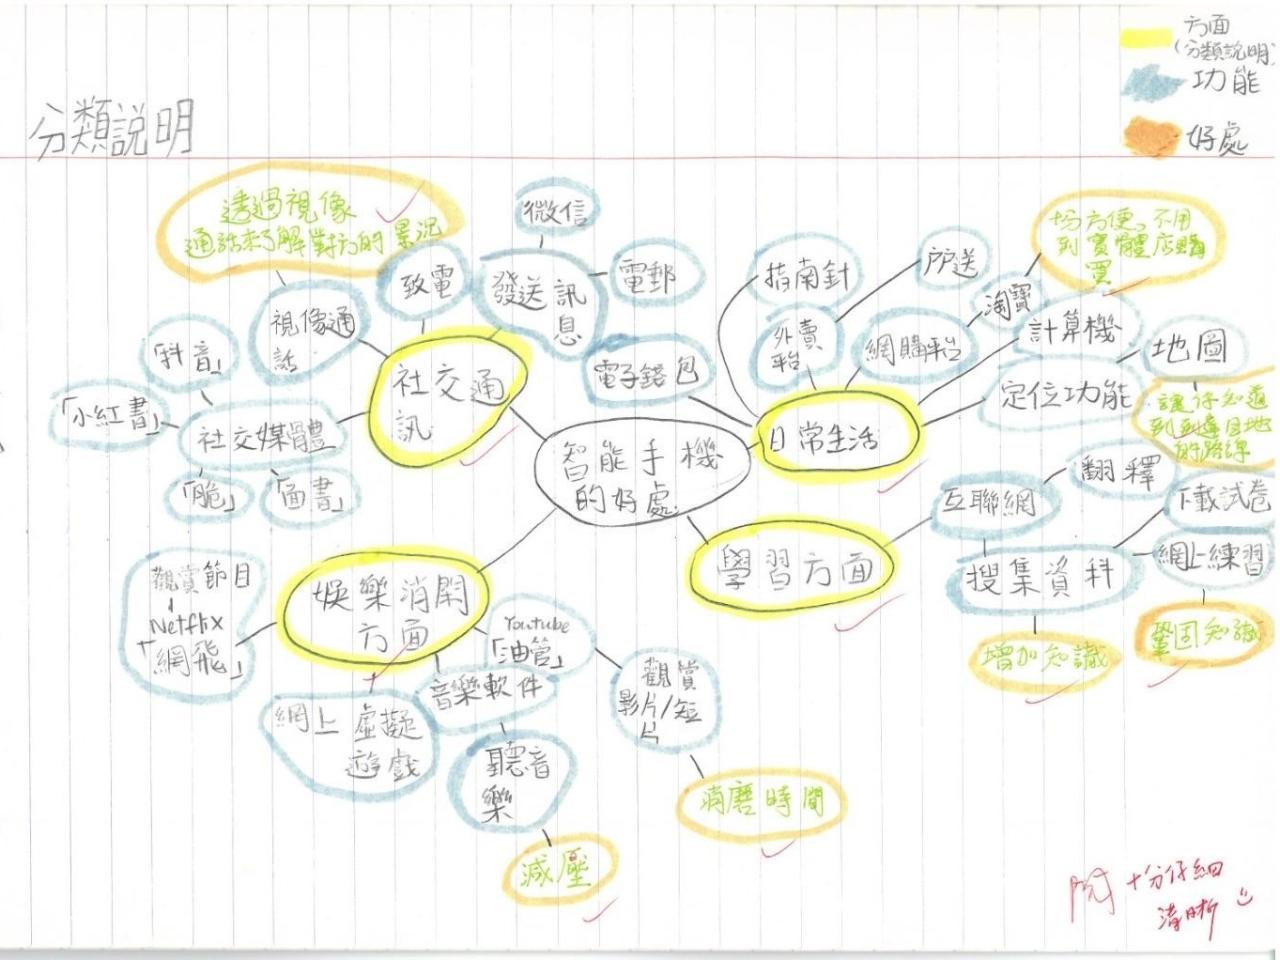 方面
(分類說明)
功能
好處
分類說明
透過視像
通話來了解對方的景況
微信
致電
發送訊
息
電郵
視像通
話
「抖音」
「小紅書」
社交媒體
「脆」
「面書」
社交通
訊
電子錢包
指南針
戶戶送
外賣
平台
網購平台
淘寶
方便。不用
到實體店購
買
計算機
地圖
定位功能
讓你知道
到達目地
的路線
日常生活
智能手機
的好處
互聯網
翻釋
下載試卷
搜集資料
網上練習
增加知識
鞏固知識
學習方面
娛樂消閒
方面
觀賞節目
Netflix
「網飛」
網上虛擬
遊戲
Youtube
「油管」
音樂軟件
聽音
樂
減壓
觀賞
影片/短
片
消磨時間
閱 十分仔細
清晰